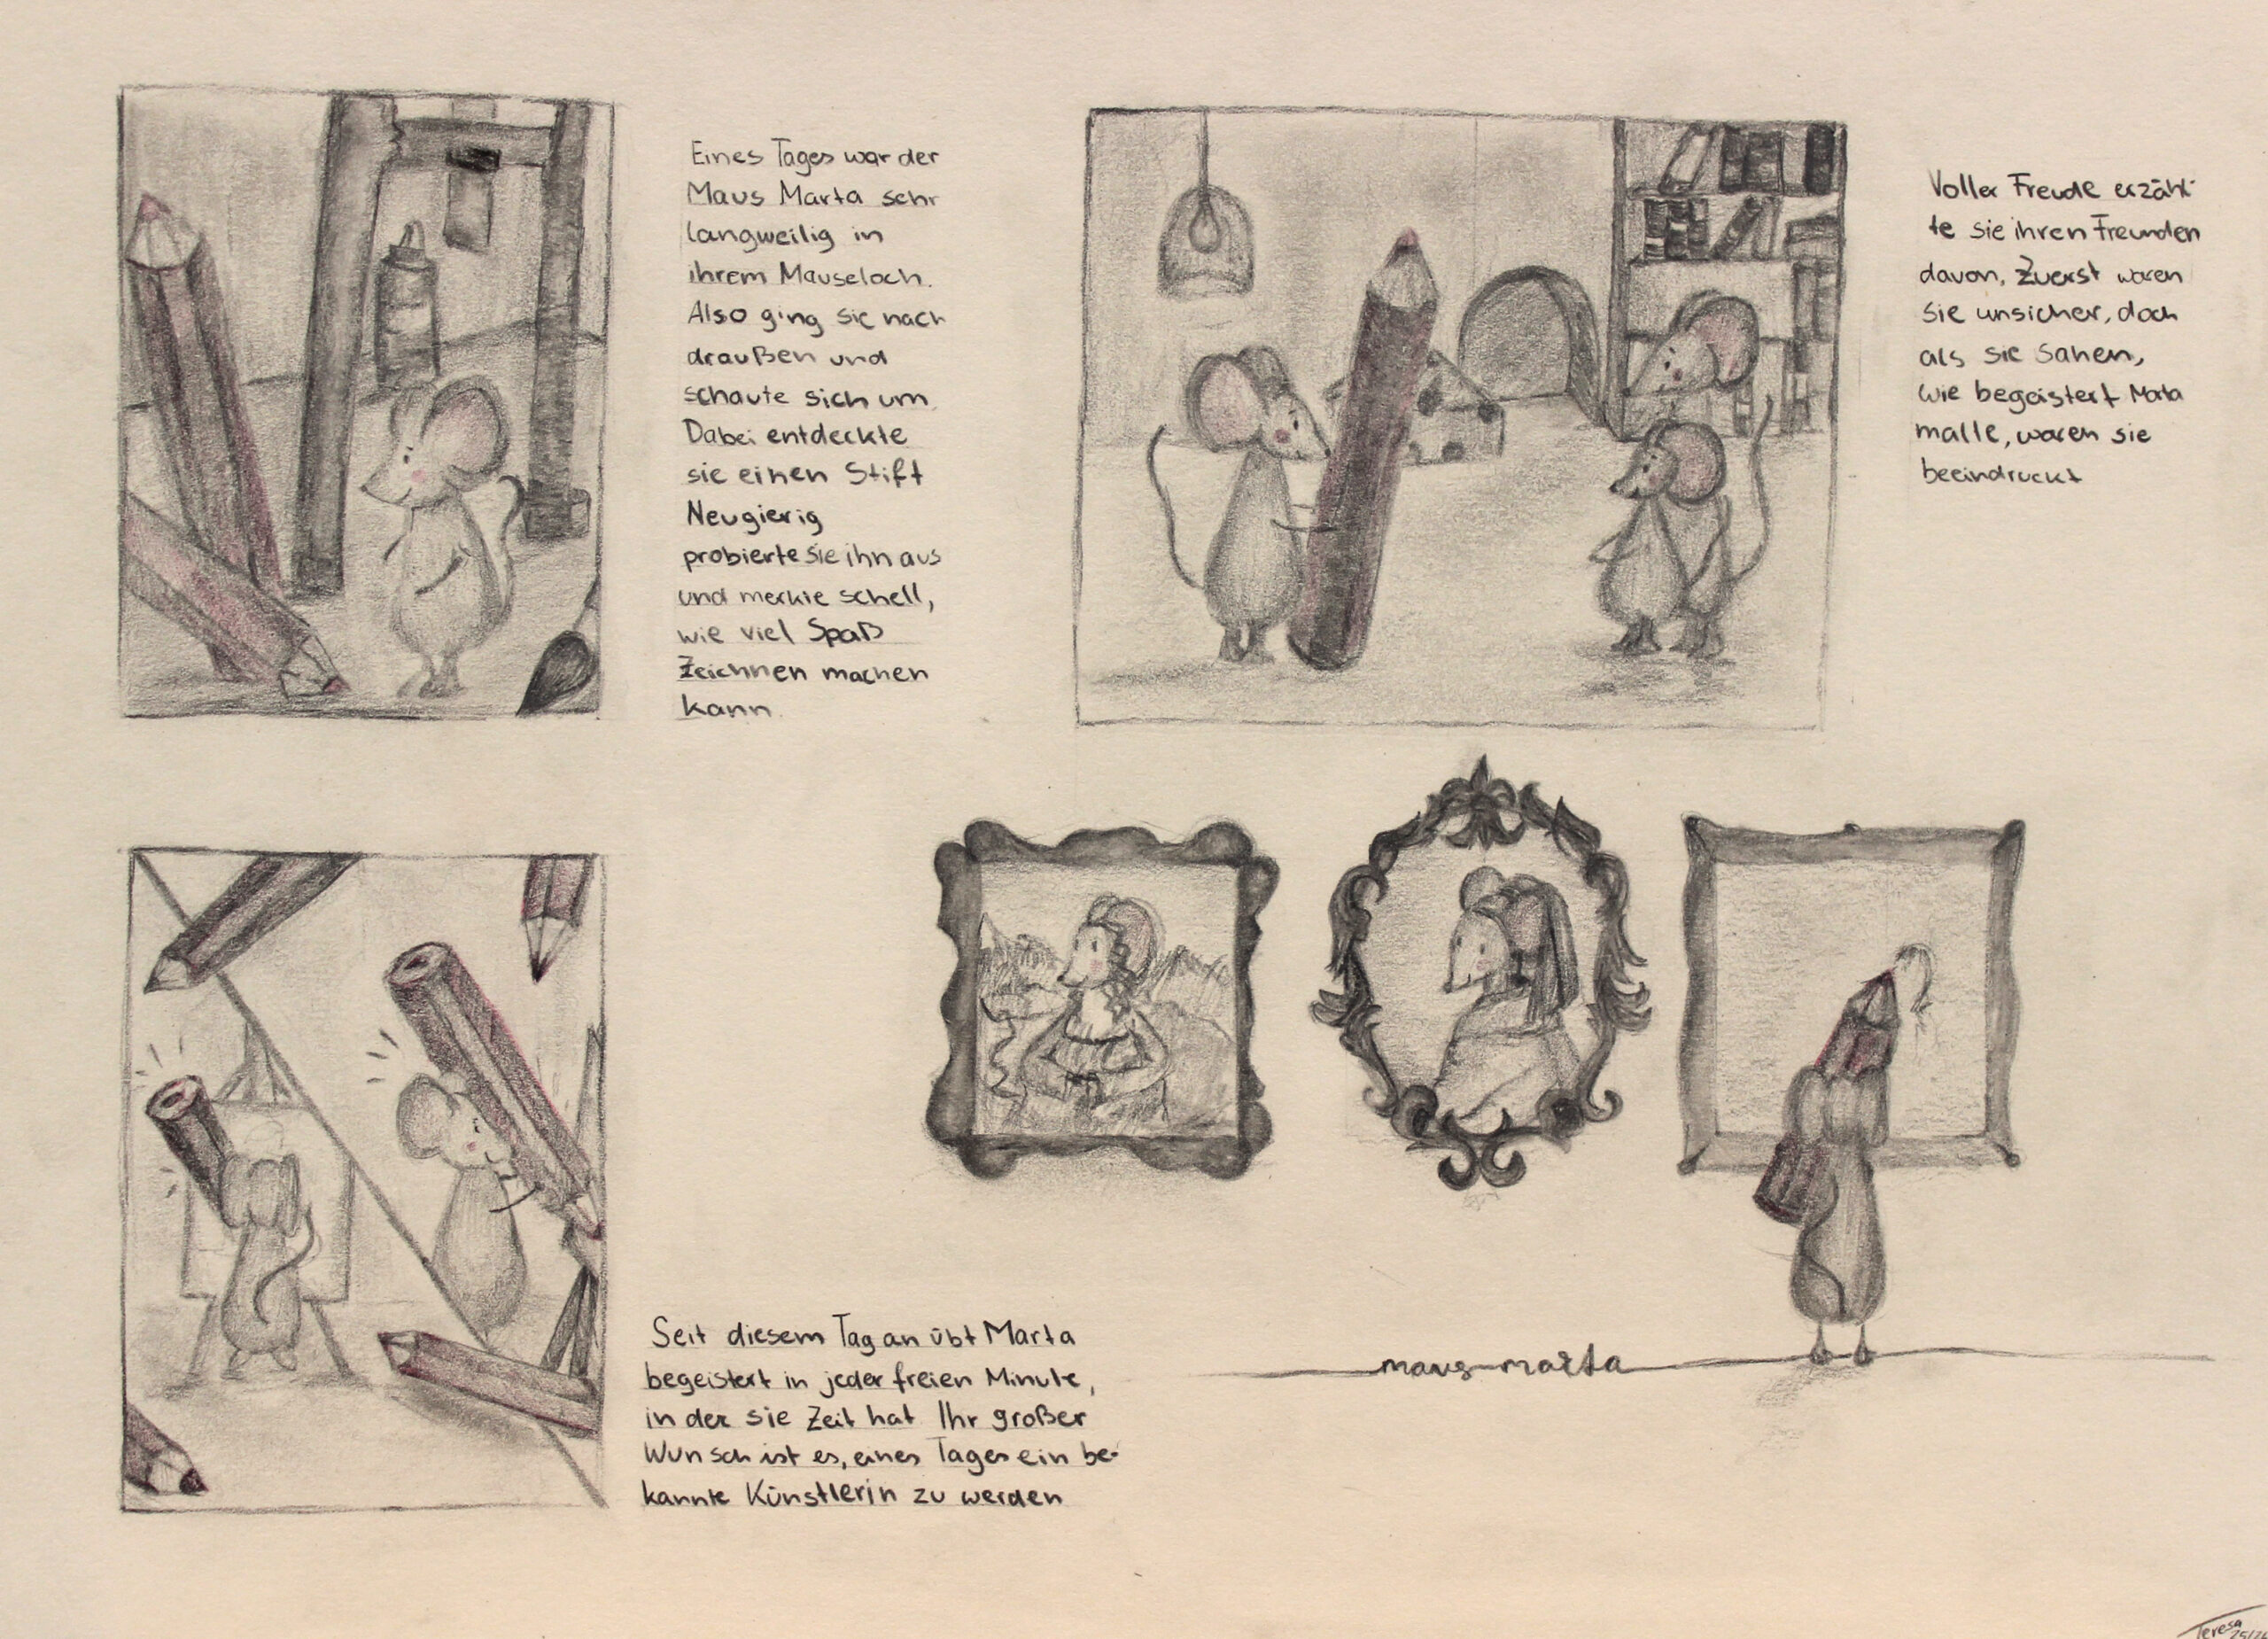 Eines Tages war der
Maus Marta sehr
langweilig in
ihrem Mauseloch.
Also ging sie nach
draußen und
schaute sich um
Dabei entdeckte
sie einen Stift
Neugierig
probierte sie ihn aus
und merkte schell,
wie viel Spaß
Zeichnen machen
kann.
Voller Freude erzähl-
te sie ihren Freunden
davon, Zuerst waren
sie unsicher, doch
als sie sahen,
wie begeistert Marta
malte, waren sie
beeindruckt
Seit diesem Tag an übt Marta
begeistert in jeder freien Minute,
in der sie Zeit hat Ihr großer
Wunsch ist es, eines Tages ein be-
kannte Künstlerin zu werden
maus-marta
Teresa